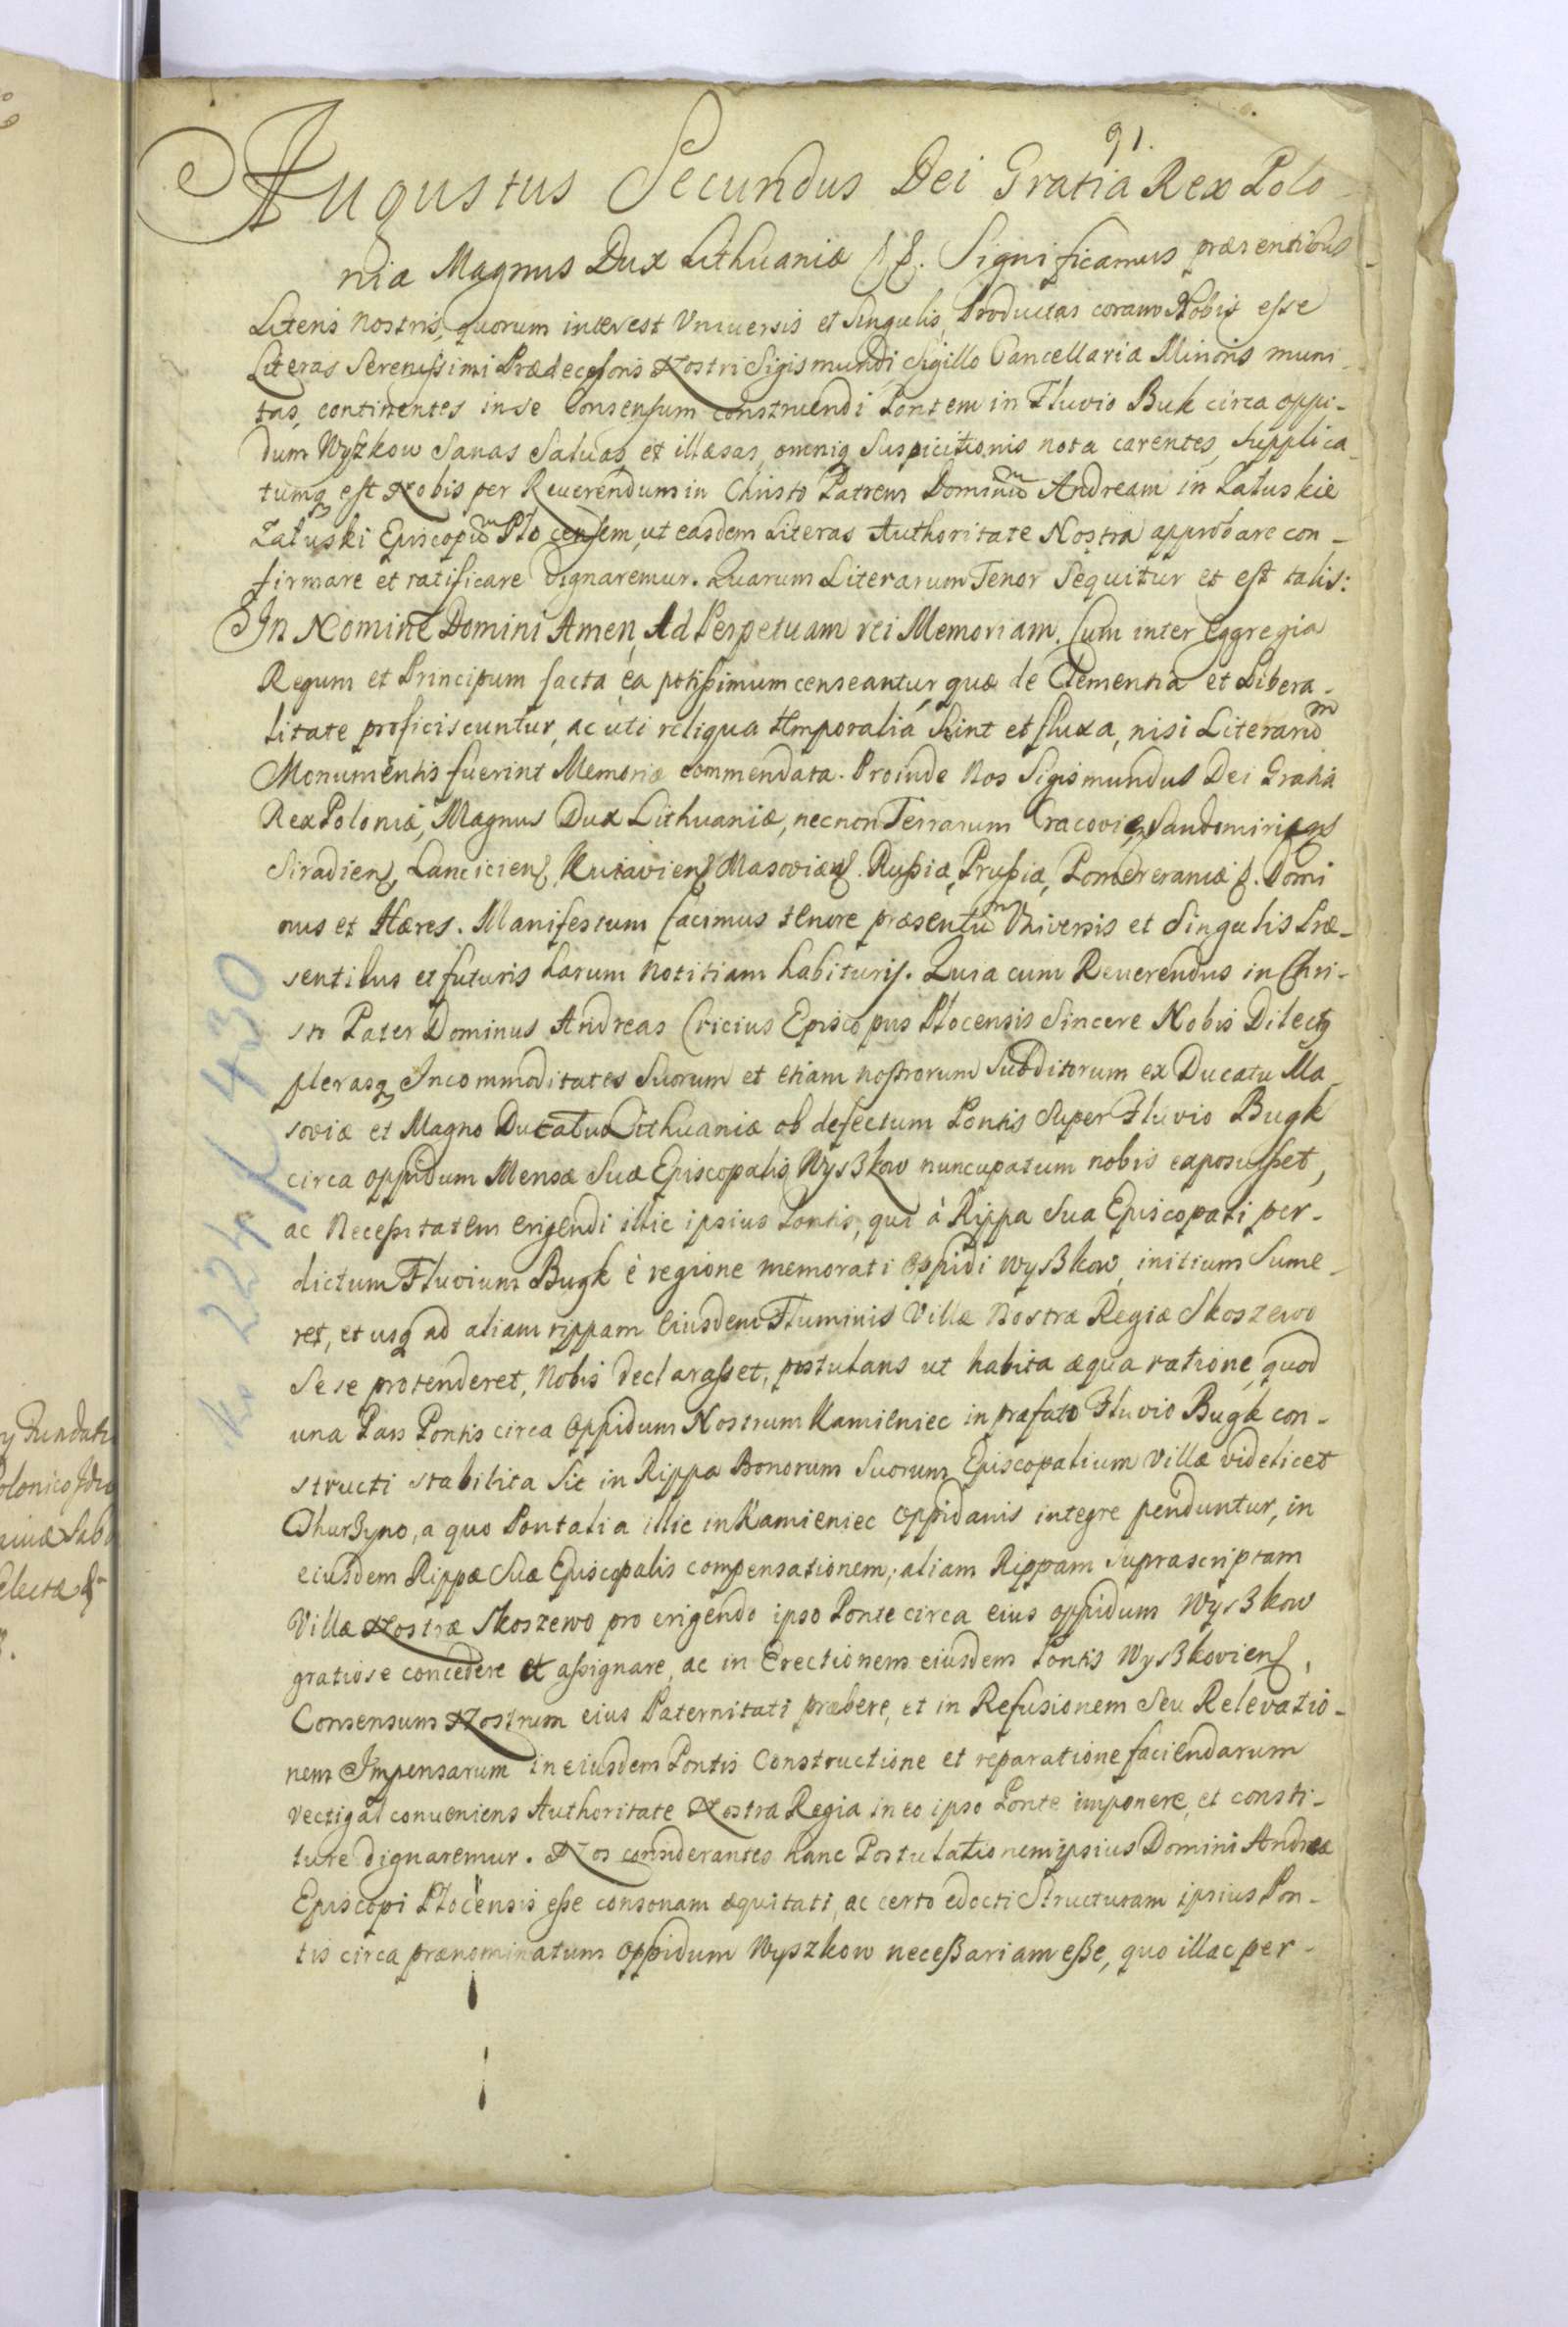 91.
Augustus Secundus Dei Gratia Rex Polo-
nia Magnus Dux Lithuaniæ Significamus præsentibus
Literis nostris, quorum interest Vniversis et Singulis, Productas coram Nobis esse
Literas Serenissimi Prædecessoris Nostri Sigismundi Sigillo Cancellaria Minoris muni-
tas, continentes in se Consensum construendi Pontem in Fluvio Buk circa oppi-
dum Wyszkow Sanas Saluas et illæsas, omniq Suspicitionis nota carentes, Supplica-
tumq est Nobis per Reuerendum in Christo Patrem Dominum Andream in Załuskie
Załuski Episcopum Płocensem, ut easdem Literas Authoritate Nostra approbare con-
firmare et ratificare dignaremur. Quarum Literarum Tenor Sequitur et est talis:
In Nomine Domini Amen, Ad Perpetuam rei Memoriam. Cum inter Eggregia
Regum et Principum facta ea potissimum censeantur, quæ de Clementia et Libera-
litate proficiscuntur, ac uti reliqua temporalia Sint et fluxa, nisi Literarum
Monumentis fuerint Memoriæ commendata. Proinde Nos Sigismundus Dei Gratia
Rex Poloniæ, Magnus Dux Lithuaniæ, necnon Terrarum
Siradien, Lancicien, Kuiavien, Russiæ, Prussiæ, Domi
nus et Hæres. Manifestum facimus tenore præsentum Vniversis et Singulis Præ-
sentibus et futuris harum notitiam habituris. Quia cum Reuerendus in Chri-
sto Pater Dominus Andreas Cricius Episcopus Płocensis Sincere Nobis Dilectq
plerasq Incommoditates Suorum et etiam nostrorum Subditorum ex Ducatu Ma-
soviæ et Magno Ducatu Lithuaniæ ob defectum Pontis Super Fluvio Bugk
circa oppidum Mensæ Suæ Episcopalis Wyszkow nuncupatum nobis exposuisset,
ac Necessitatem erigendi illic ipsius Pontis, qui à Rippa Sua Episcopali per-
dictum Fluvium Bugk è regione memorati Oppidi Wyszkow, initium Sume-
ret, et usq ad aliam rippam eiusdem Fluminis Villæ Nostræ Regiæ Skoszewo
Sese protenderet, Nobis declarasset, postulans ut habita æqua ratione, quod
una Pars Pontis circa Oppidum Nostrum Kamieniec in præfato Fluvio Bugk con-
structi stabilita Sit in Rippa Bonorum Suorum Episcopalium Villæ videlicet
a quo Pontalia illic in Kamieniec Oppidanis integre penduntur, in
eiusdem Rippæ Suæ Episcopalis compensationem, aliam Rippam Suprascriptam
Villæ Nostræ Skoszewo pro erigendo ipso Ponte circa eius oppidum Wyszkow
gratiose concedere et assignare, ac in Erectionem eiusdem Pontis Wyszkovien,
Consensum Nostrum eius Paternitati præbere, et in Refusionem Seu Relevatio-
nem Impensarum in eiusdem Pontis Constructione et reparatione faciendarum
vectigal conueniens Authoritate Nostra Regia in eo ipso Ponte imponere, et consti-
ture dignaremur. Nos considerantes hanc Postulationem ipsius Domini Andreæ
Episcopi Płocensis esse consonam æquitati, ac certo edocti Structuram ipsius Pon-
tis circa prænominatum Oppidum Wyszkow necessariam esse, quo illac per-
224/K 430